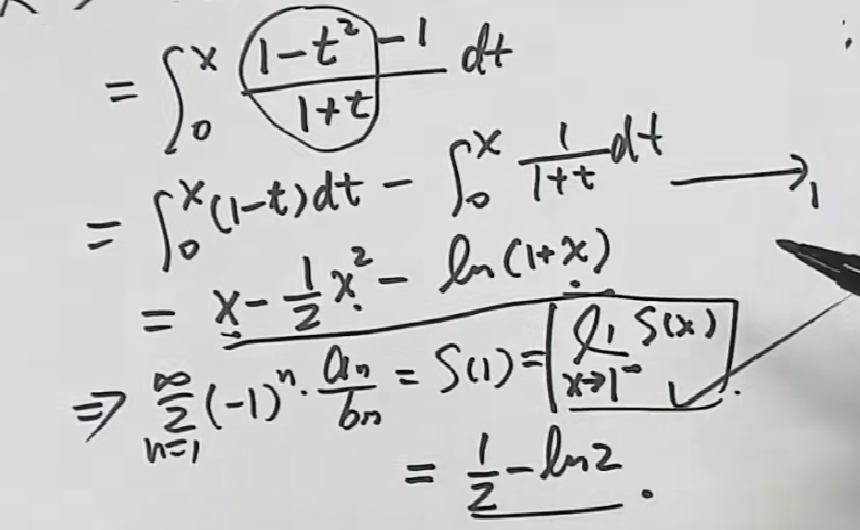 = ∫₀ˣ (1-t²-1)/(1+t) dt
= ∫₀ˣ (1-t)dt - ∫₀ˣ 1/(1+t) dt →
= x - 1/2 x² - ln(1+x)
⇒ ∑_{n=1}^{∞} (-1)ⁿ · aₙ/bₙ = S(1) = lim_{x→1⁻} S(x)
= 1/2 - ln2.